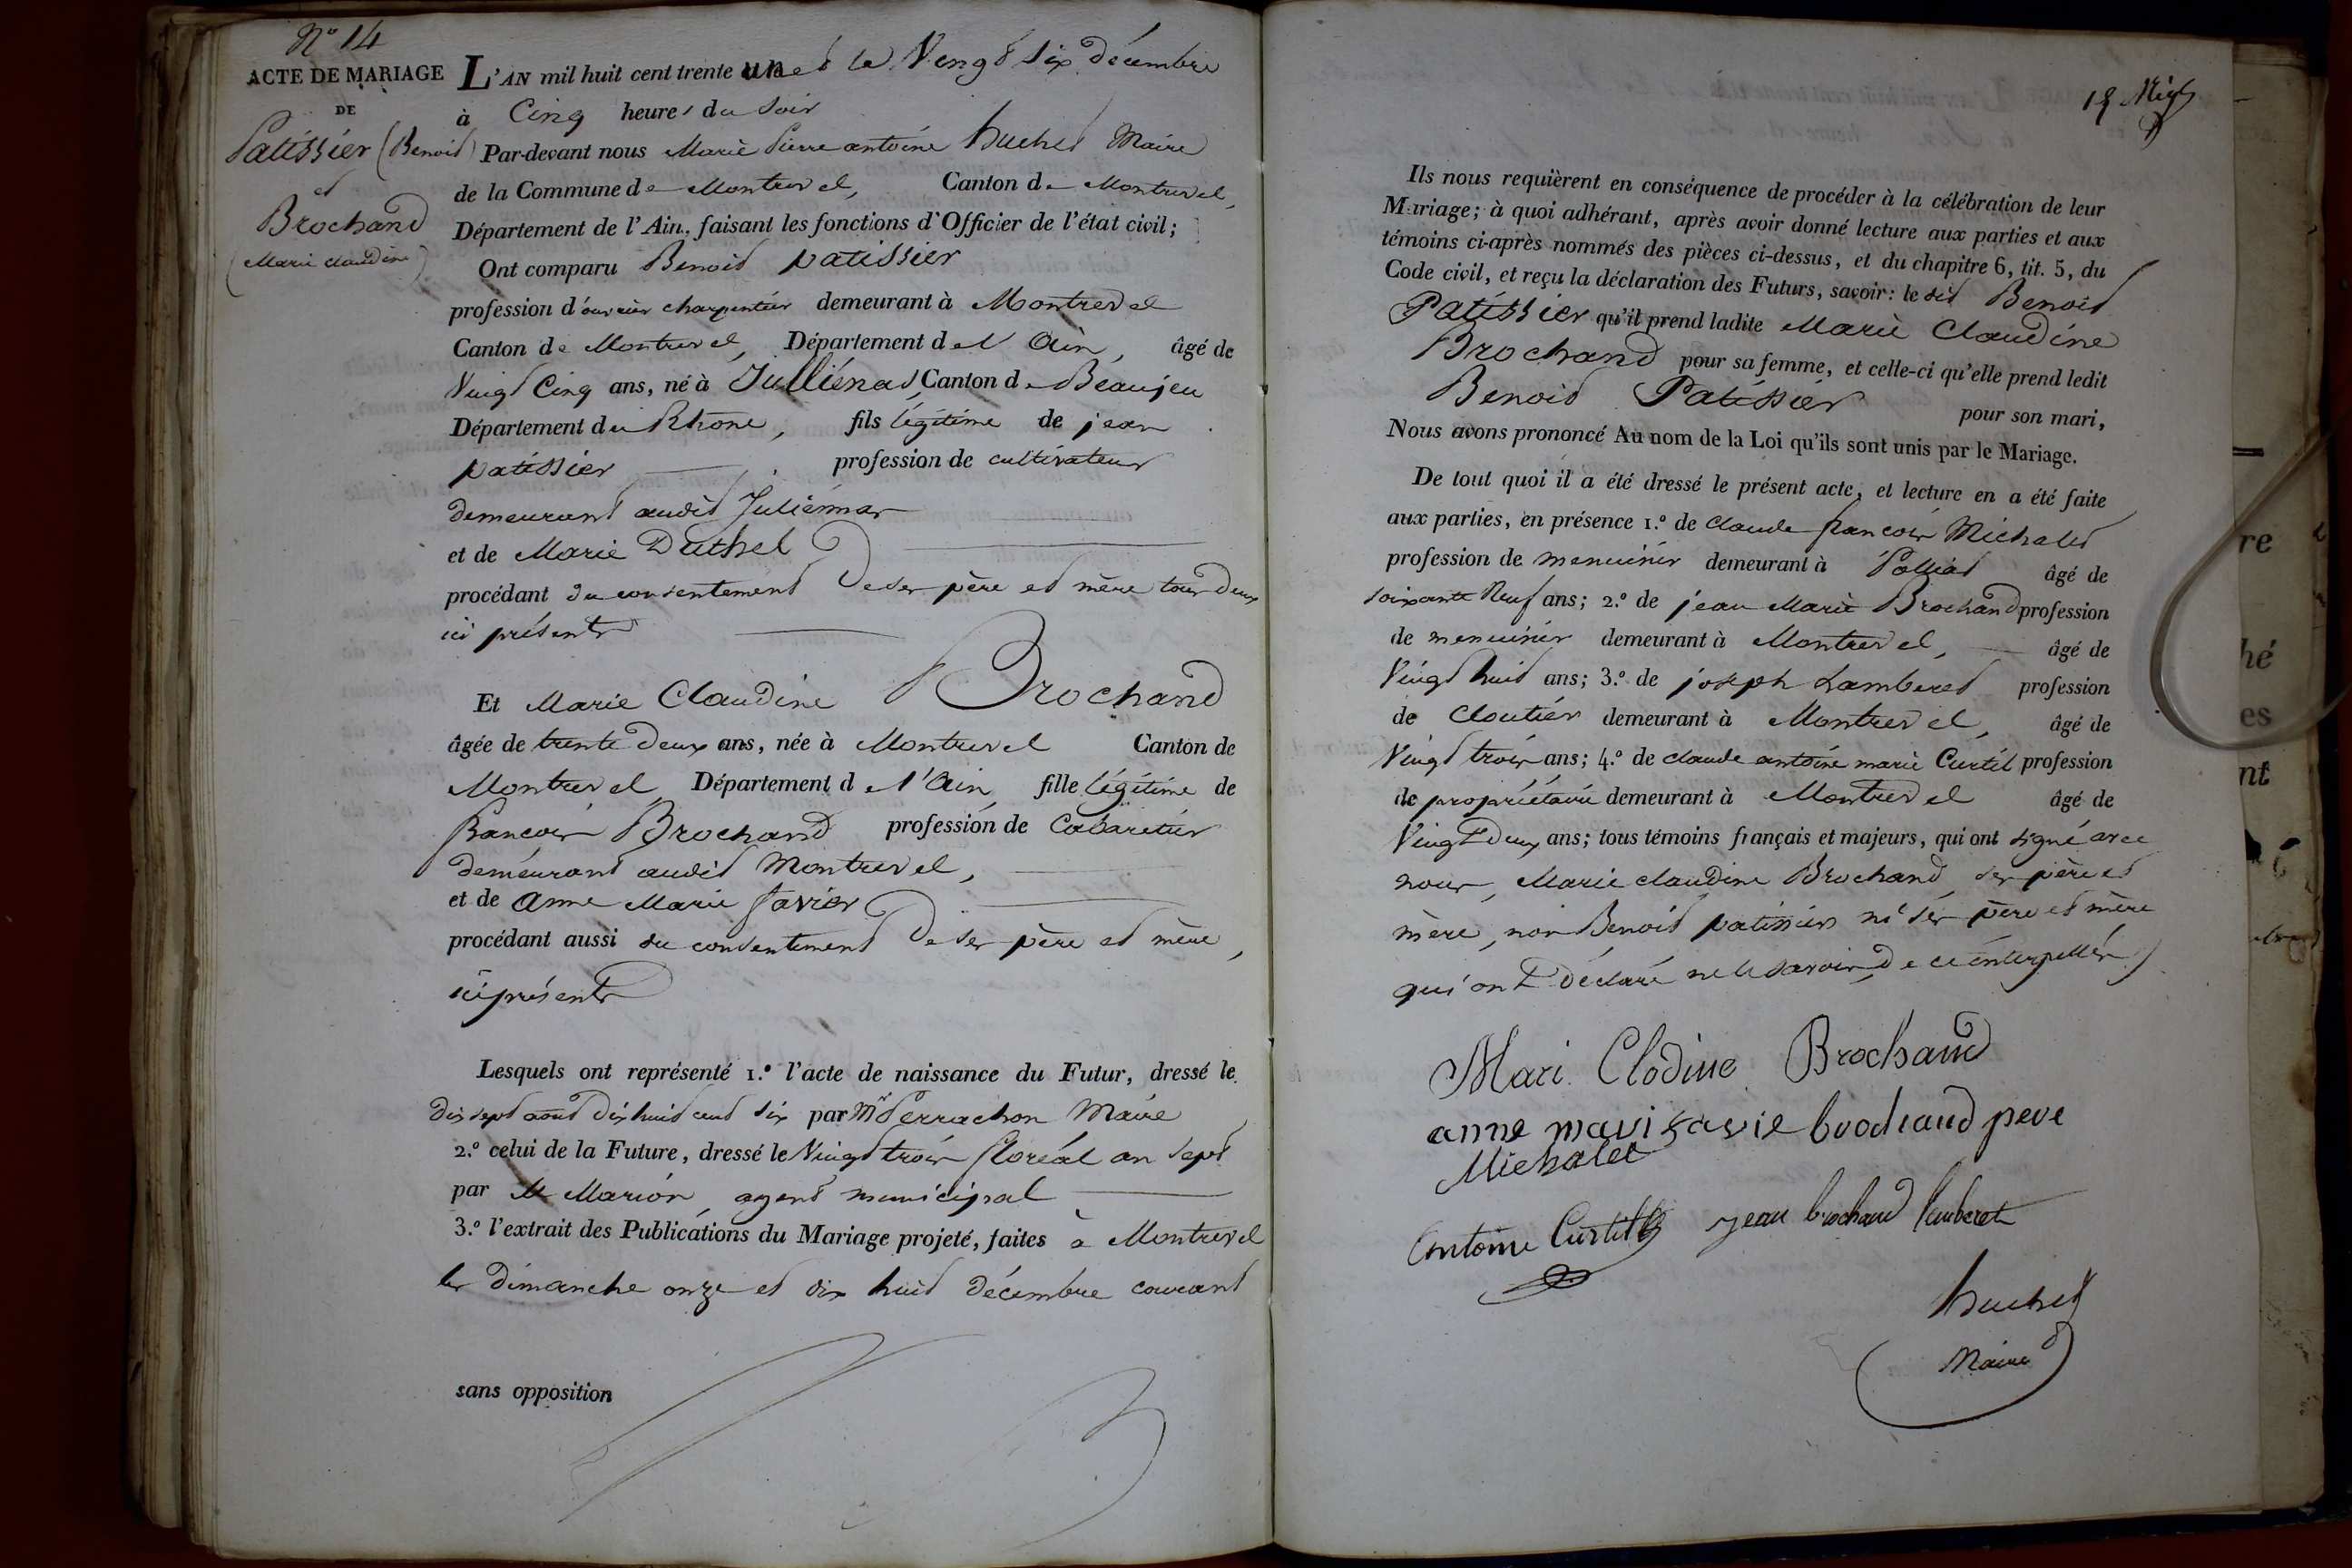 N° 14
ACTE DE MARIAGE
DE
Patissier (Benoit)
et
Brochand
(Marie Claudine)
L'AN mil huit cent trente un et le Vingt six décembre
à Cinq heures du Soir
Par-devant nous Marie Pierre antoine huchet Maire
de la Commune de Montrevel, Canton de Montrevel,
Département de l'Ain, faisant les fonctions d'Officier de l'état civil;
Ont comparu Benoit patissier
profession d'ouvrier charpentier demeurant à Montrevel
Canton de Montrevel, Département de l'Ain, âgé de
Vingt Cinq ans, né à Julliénas, Canton de Beaujeu
Département du Rhone, fils légitime de jean
patissier profession de cultivateur
demeurant audit Juliénnas
et de Marie Duthel
procédant du consentement de ses père et mère tous deux
ici présents
Et Marie Claudine Brochand
âgée de trente deux ans, née à Montrevel Canton de
Montrevel, Département de l'Ain, fille légitime de
francois Brochand profession de Cabaretier
demeurant audit Montrevel,
et de Anne Marie Savier
procédant aussi du consentement de ses père et mère,
ici présents
Lesquels ont représenté 1.° l'acte de naissance du Futur, dressé le
dix sept aout dix huit cent six par Mr Perrachon Maire
2.° celui de la Future, dressé le Vingt trois floréal an Sept
par Mr Marion, agent municipal
3.° l'extrait des Publications du Mariage projeté, faites à Montrevel
les dimanche onze et dix huit décembre courant
sans opposition
Ils nous requièrent en conséquence de procéder à la célébration de leur
Mariage; à quoi adhérant, après avoir donné lecture aux parties et aux
témoins ci-après nommés des pièces ci-dessus, et du chapitre 6, tit. 5, du
Code civil, et reçu la déclaration des Futurs, savoir: le dit Benoit
Patissier qu'il prend ladite Marie Claudine
Brochand pour sa femme, et celle-ci qu'elle prend ledit
Benoit Patissier pour son mari,
Nous avons prononcé Au nom de la Loi qu'ils sont unis par le Mariage.
De tout quoi il a été dressé le présent acte, et lecture en a été faite
aux parties, en présence 1.° de claude francois Michalet
profession de menuisier demeurant à Polliat âgé de
soixante Neuf ans; 2.° de jean Marie Brochand profession
de menuisier demeurant à Montrevel, âgé de
Vingt huit ans; 3.° de joseph Lamberet profession
de Cloutier demeurant à Montrevel, âgé de
Vingt trois ans; 4.° de claude antoine marie Curtil profession
de propriétaire demeurant à Montrevel âgé de
Vingt Deux ans; tous témoins français et majeurs, qui ont signé avec
nous, Marie claudine Brochand, ses père et
mère, non Benoit patissier ni ses père et mère
qui ont déclaré ne le savoir, de ce interpellés
Mari Clodine Brochand
anne mari savie brochaud pere
Michalet
Antoine Curtil jean brochand lamberet
huchet
Maire